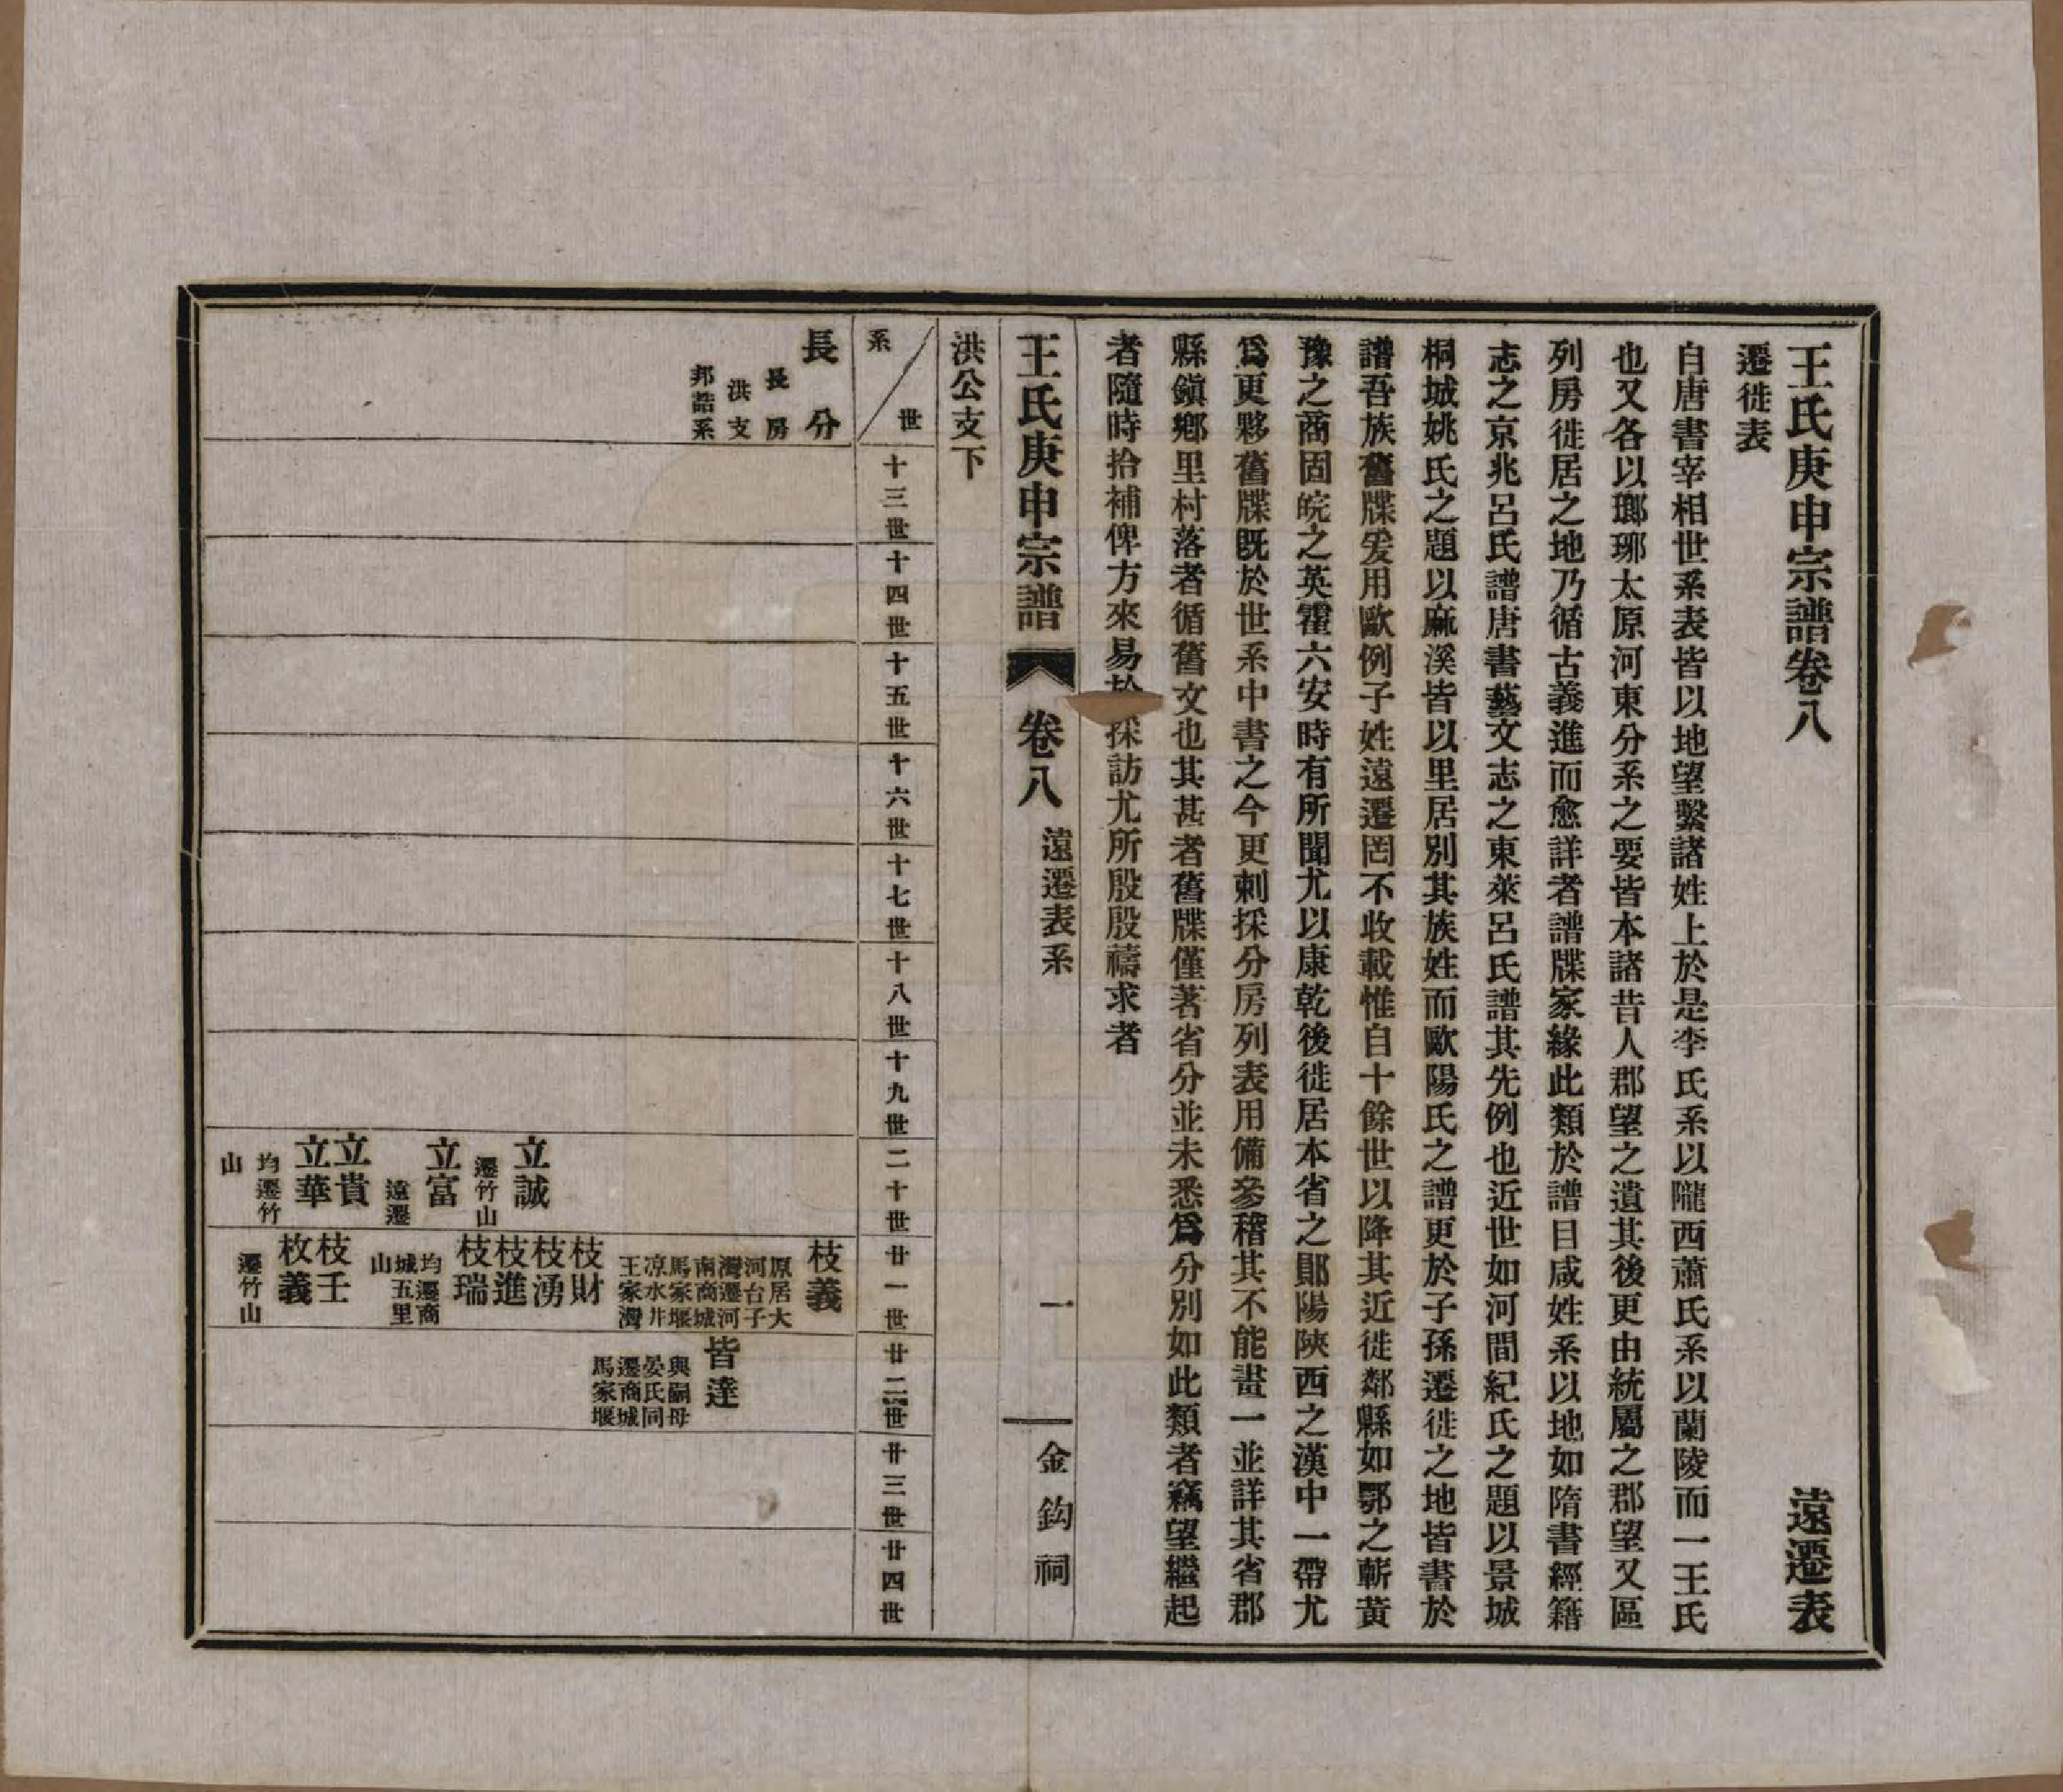 王氏庚申宗譜卷八　遠遷表
遷徙表
自唐書宰相世系表皆以地望繫諸姓上於是李氏系以隴西蕭氏系以蘭陵而一王氏
也又各以瑯琊太原河東分系之要皆本諸昔人郡望之遺其後更由統屬之郡望又區
列房徙居之地乃循古義進而愈詳者譜牒家緣此類於譜目咸姓系以地如隋書經籍
志之京兆呂氏譜唐書藝文志之東萊呂氏譜其先例也近世如河間紀氏之題以景城
桐城姚氏之題以麻溪皆以里居別其族姓而歐陽氏之譜更於子孫遷徙之地皆書於
譜吾族舊牒爰用歐例子姓遠遷罔不收載惟自十餘世以降其近徙鄰縣如鄂之蘄黃
豫之商固皖之英霍六安時有所聞尤以康乾後徙居本省之鄖陽陝西之漢中一帶尤
爲更夥舊牒既於世系中書之今更刺採分房列表用備參稽其不能畫一並詳其省郡
縣鎭鄉里村落者循舊文也其甚者舊牒僅著省分並未悉爲分別如此類者竊望繼起
者隨時拾補俾方來易於採訪尤所殷殷禱求者
王氏庚申宗譜　卷八　遠遷表系　一　金鈎祠
洪公支下
世
系
十三世
十四世
十五世
十六世
十七世
十八世
十九世
二十世
廿一世
廿二世
廿三世
廿四世
長分
長房
洪支
邦誥系
立誠
遷竹山
立富
遠遷
立貴
立華
均遷竹
山
枝義
原居大
河台子
灣遷河
南商城
馬家堰
凉水井
王家灣
枝財
枝湧
枝進
枝瑞
均遷商
城五里
山
枝壬
枚義
遷竹山
皆達
與嗣母
晏氏同
遷商城
馬家堰